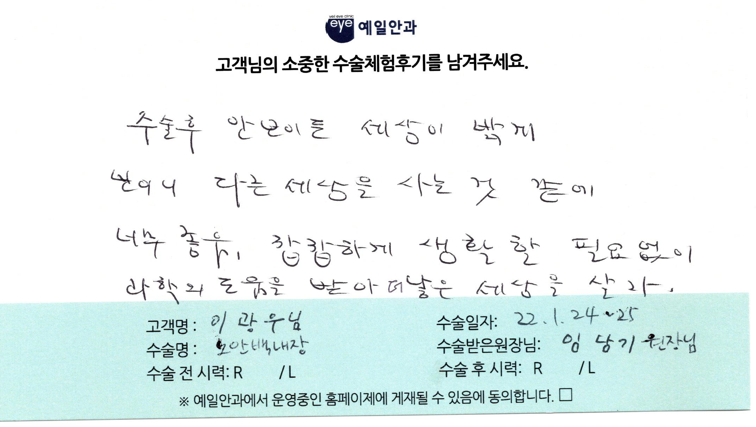 eye 예일안과
고객님의 소중한 수술체험후기를 남겨주세요.
수술후 안보이든 세상이 밝게
보이니 다른 세상을 사는 것 같에
너무 좋음, 캄캄하게 생활할 필요없이
과학의 도움을 받아 더낳은 세상을 살자.
고객명 : 이광우님
수술일자: 22.1.24~25
수술명 : 노안백내장
수술받은원장님: 임상기 원장님
수술 전 시력: R /L
수술 후 시력: R /L
※ 예일안과에서 운영중인 홈페이제에 게재될 수 있음에 동의합니다. □